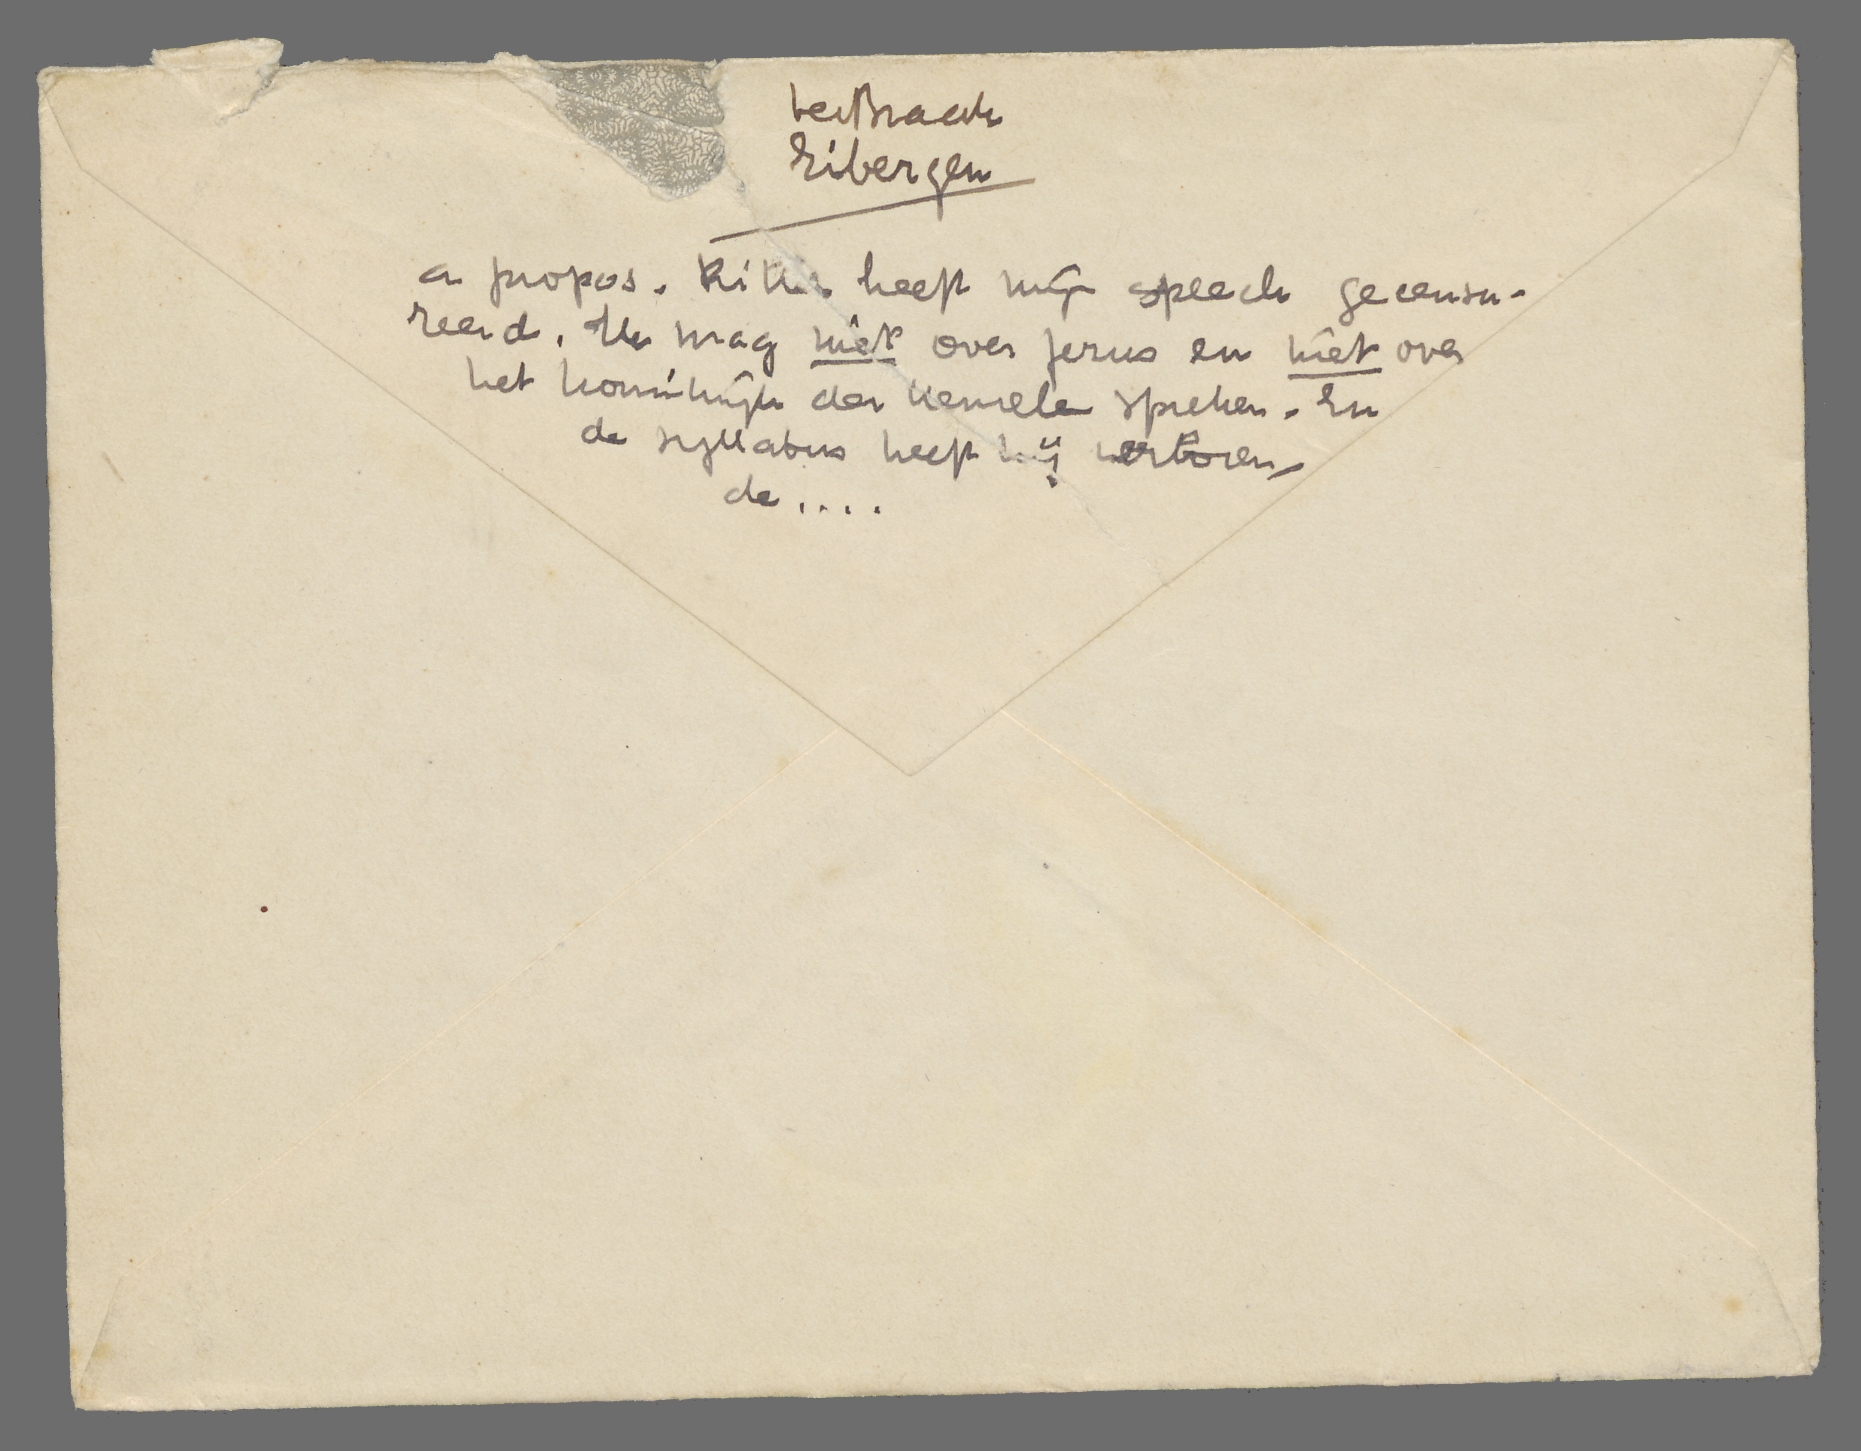 ter Braak
Eibergen
a propos. Ritter heeft mijn speech gecensu-
reerd. Ik mag niet over Jezus en niet over
het koninkrijk der hemelen spreken. En
de syllabus heeft hij verloren
de....